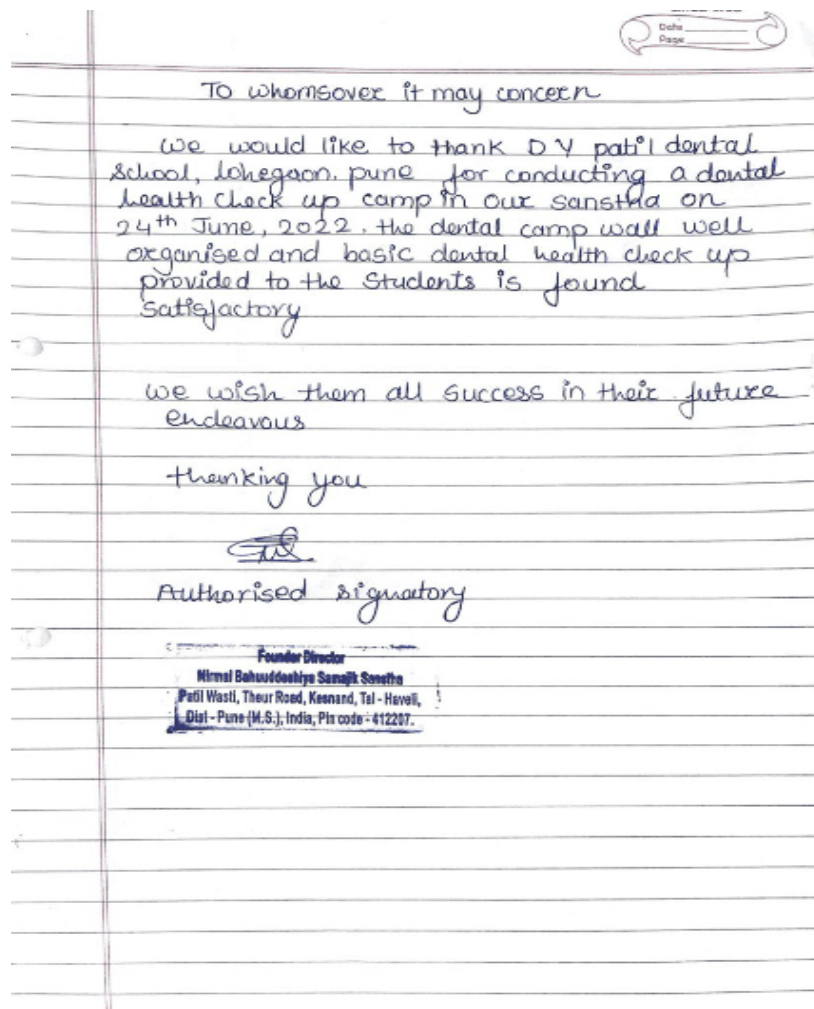 Date
Page
To whomsover it may concern
we would like to thank D Y patil dental
school, lohegaon. pune for conducting a dental
health check up camp in our sanstha on
24th June, 2022. the dental camp wall well
organised and basic dental health check up
provided to the students is found
satisfactory
we wish them all success in their future
endeavous
thanking you
Authorised signatory
Founder Director
Nirmal Bahuuddeshiya Samajik Sanstha
Patil Wasti, Theur Road, Kesnand, Tal - Haveli,
Dist - Pune (M.S.), India, Pin code - 412207.